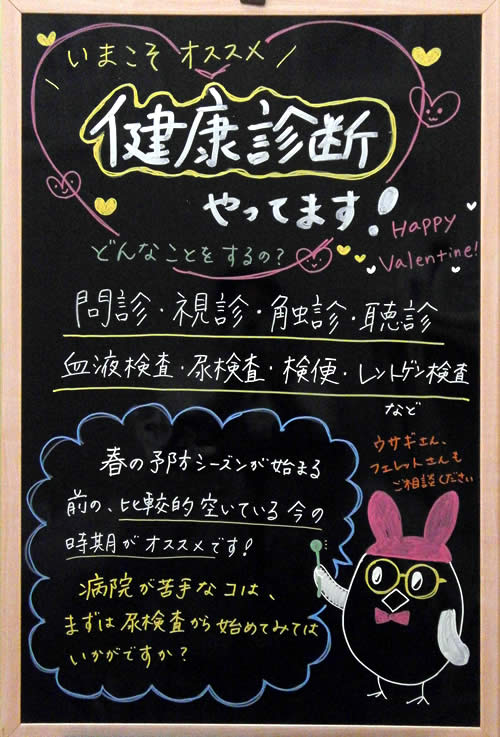 いまこそ オススメ
健康診断
やってます!
Happy
Valentine!
どんなことをするの?
問診・視診・触診・聴診
血液検査・尿検査・検便・レントゲン検査
など
ウサギさん、
フェレットさんも
ご相談ください
春の予防シーズンが始まる
前の、比較的空いている今の
時期がオススメです!
病院が苦手なコは、
まずは尿検査から始めてみては
いかがですか?